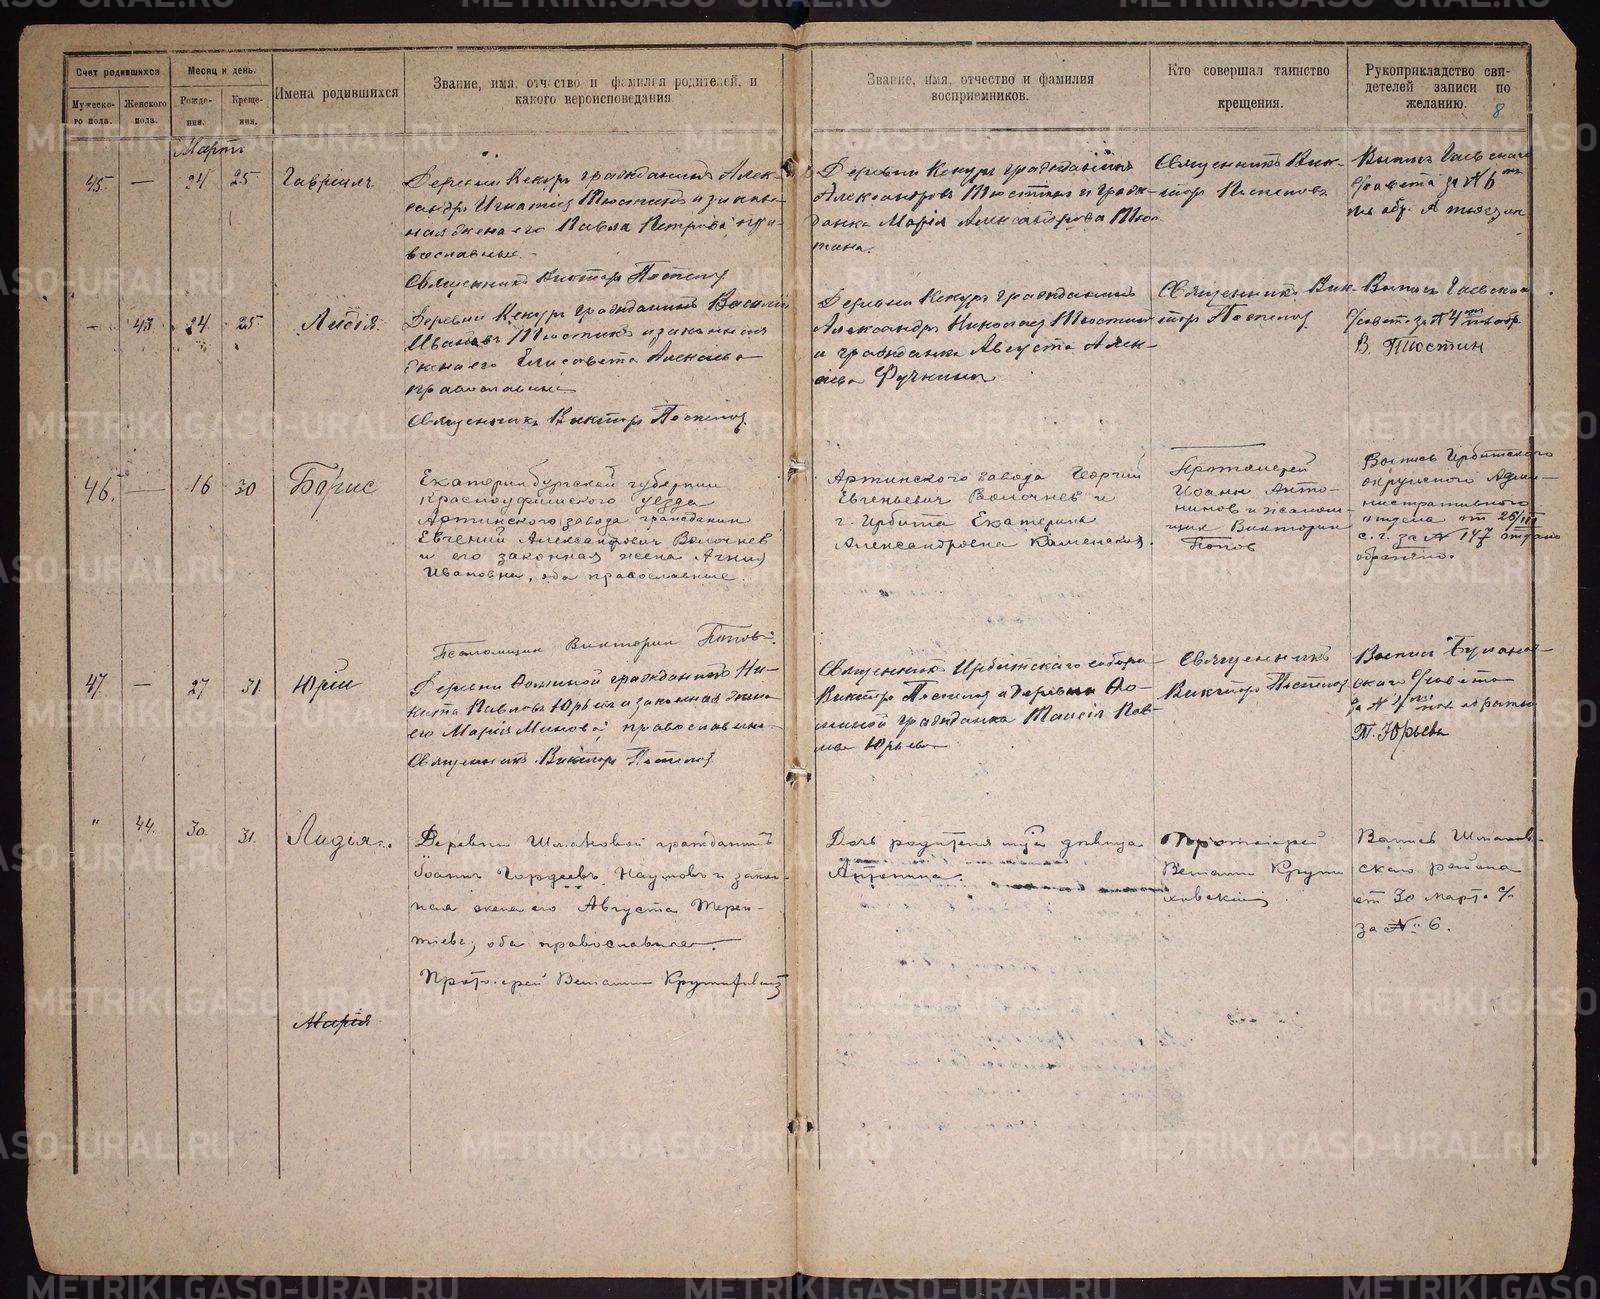 Счет родившихся
Мужеско-
го пола.
Женского
пола.
Месяц и день.
Рожде-
ния.
Креще-
ния.
Имена родившихся
Звание, имя, отчество и фамилия родителей, и
какого вероисповедания
Звание, имя, отчество и фамилия
восприемников.
Кто совершал таинство
крещения.
Рукоприкладство сви-
детелей записи по
желанию.
8
Мартъ
45. — 24 25 Гавріилъ
Деревни Кекуръ гражданинъ Алек-
сандръ Игнатіев Тюстинъ и закон-
ная жена его Павла Петрова, пра-
вославные.
Священникъ Викторъ Поспелов
Деревни Кекуръ гражданинъ
Александровъ Тюстинъ и граж-
данка Марія Александрова Тюс-
тина.
Священникъ Вик-
торъ Поспелов
Выпись Гаевскаго
с/совета за № 6
— 43 24 25 Лидія.
Деревни Кекуръ гражданинъ Василій
Ивановъ Тюстинъ и законная
жена его Елисавета Алексіева
православные
Священникъ Викторъ Поспелов
Деревни Кекуръ гражданинъ
Александръ Николаев Тюстин
и гражданка Августа Алек-
сіева Фучкина
Священникъ Вик-
торъ Поспелов
Выпись Гаевского
с/совета за № 4
В. Тюстин
46. — 16 30 Борис
Екатеринбургской губернии
Красноуфимского уезда
Артинского завода гражданин
Евгений Александрович Волочнев
и его законная жена Агния
Ивановна, оба православные.
Псаломщик Викторин Попов.
Артинского завода Георгий
Евгеньевич Волочнев и
г. Ирбита Екатерина
Александровна Каменская.
Протоиерей
Иоанн Анто-
нинов и псалом-
щик Викторин
Попов
Выпись Ирбитского
окружного Адми-
нистративного
отдела от 26/III
с. г. за № 147 отдано
обратно.
47. — 27 31. Юрій
Деревни Фоминой гражданинъ Ни-
кита Павловъ Юрьев и законная жена
его Марія Минова, православные
Священникъ Викторъ Поспелов
Священникъ Ирбитскаго собора
Викторъ Поспелов и деревни Фо-
миной гражданка Таисія Пав-
лова Юрьева
Священникъ
Викторъ Поспелов
Выпись Буланов-
скаго с/совета
за № 4
Т. Юрьева
" 44. 30. 31. Лидія.
Деревни Шмаковой гражданинъ
Іоаннъ Гордеевъ Наумовъ и закон-
ная жена его Августа Терен-
тіева, оба православные.
Протоіерей Веніамин
Дочь родителя тъя дѣвица
Антонина.
Протоіерей
Веніамин
Выпись Шмаков-
скаго района
от 30 марта с/г
за № 6.
Марія
METRIKI.GASO-URAL.RU